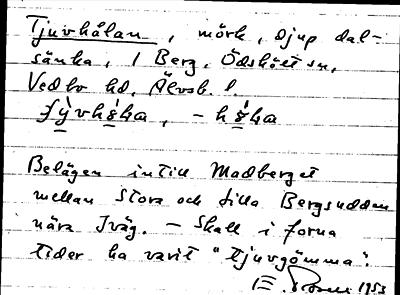 Tjuvhålan, mörk, djup dal-
sänka, i Berg, Ödskölt sn,
Vedbo hd. Älvsb. l.
Belägen intill Madberget
mellan Stora och Lilla Bergsudden
nära Iväg. – Skall i forna
tider ha varit "tjuvgömma".
1953